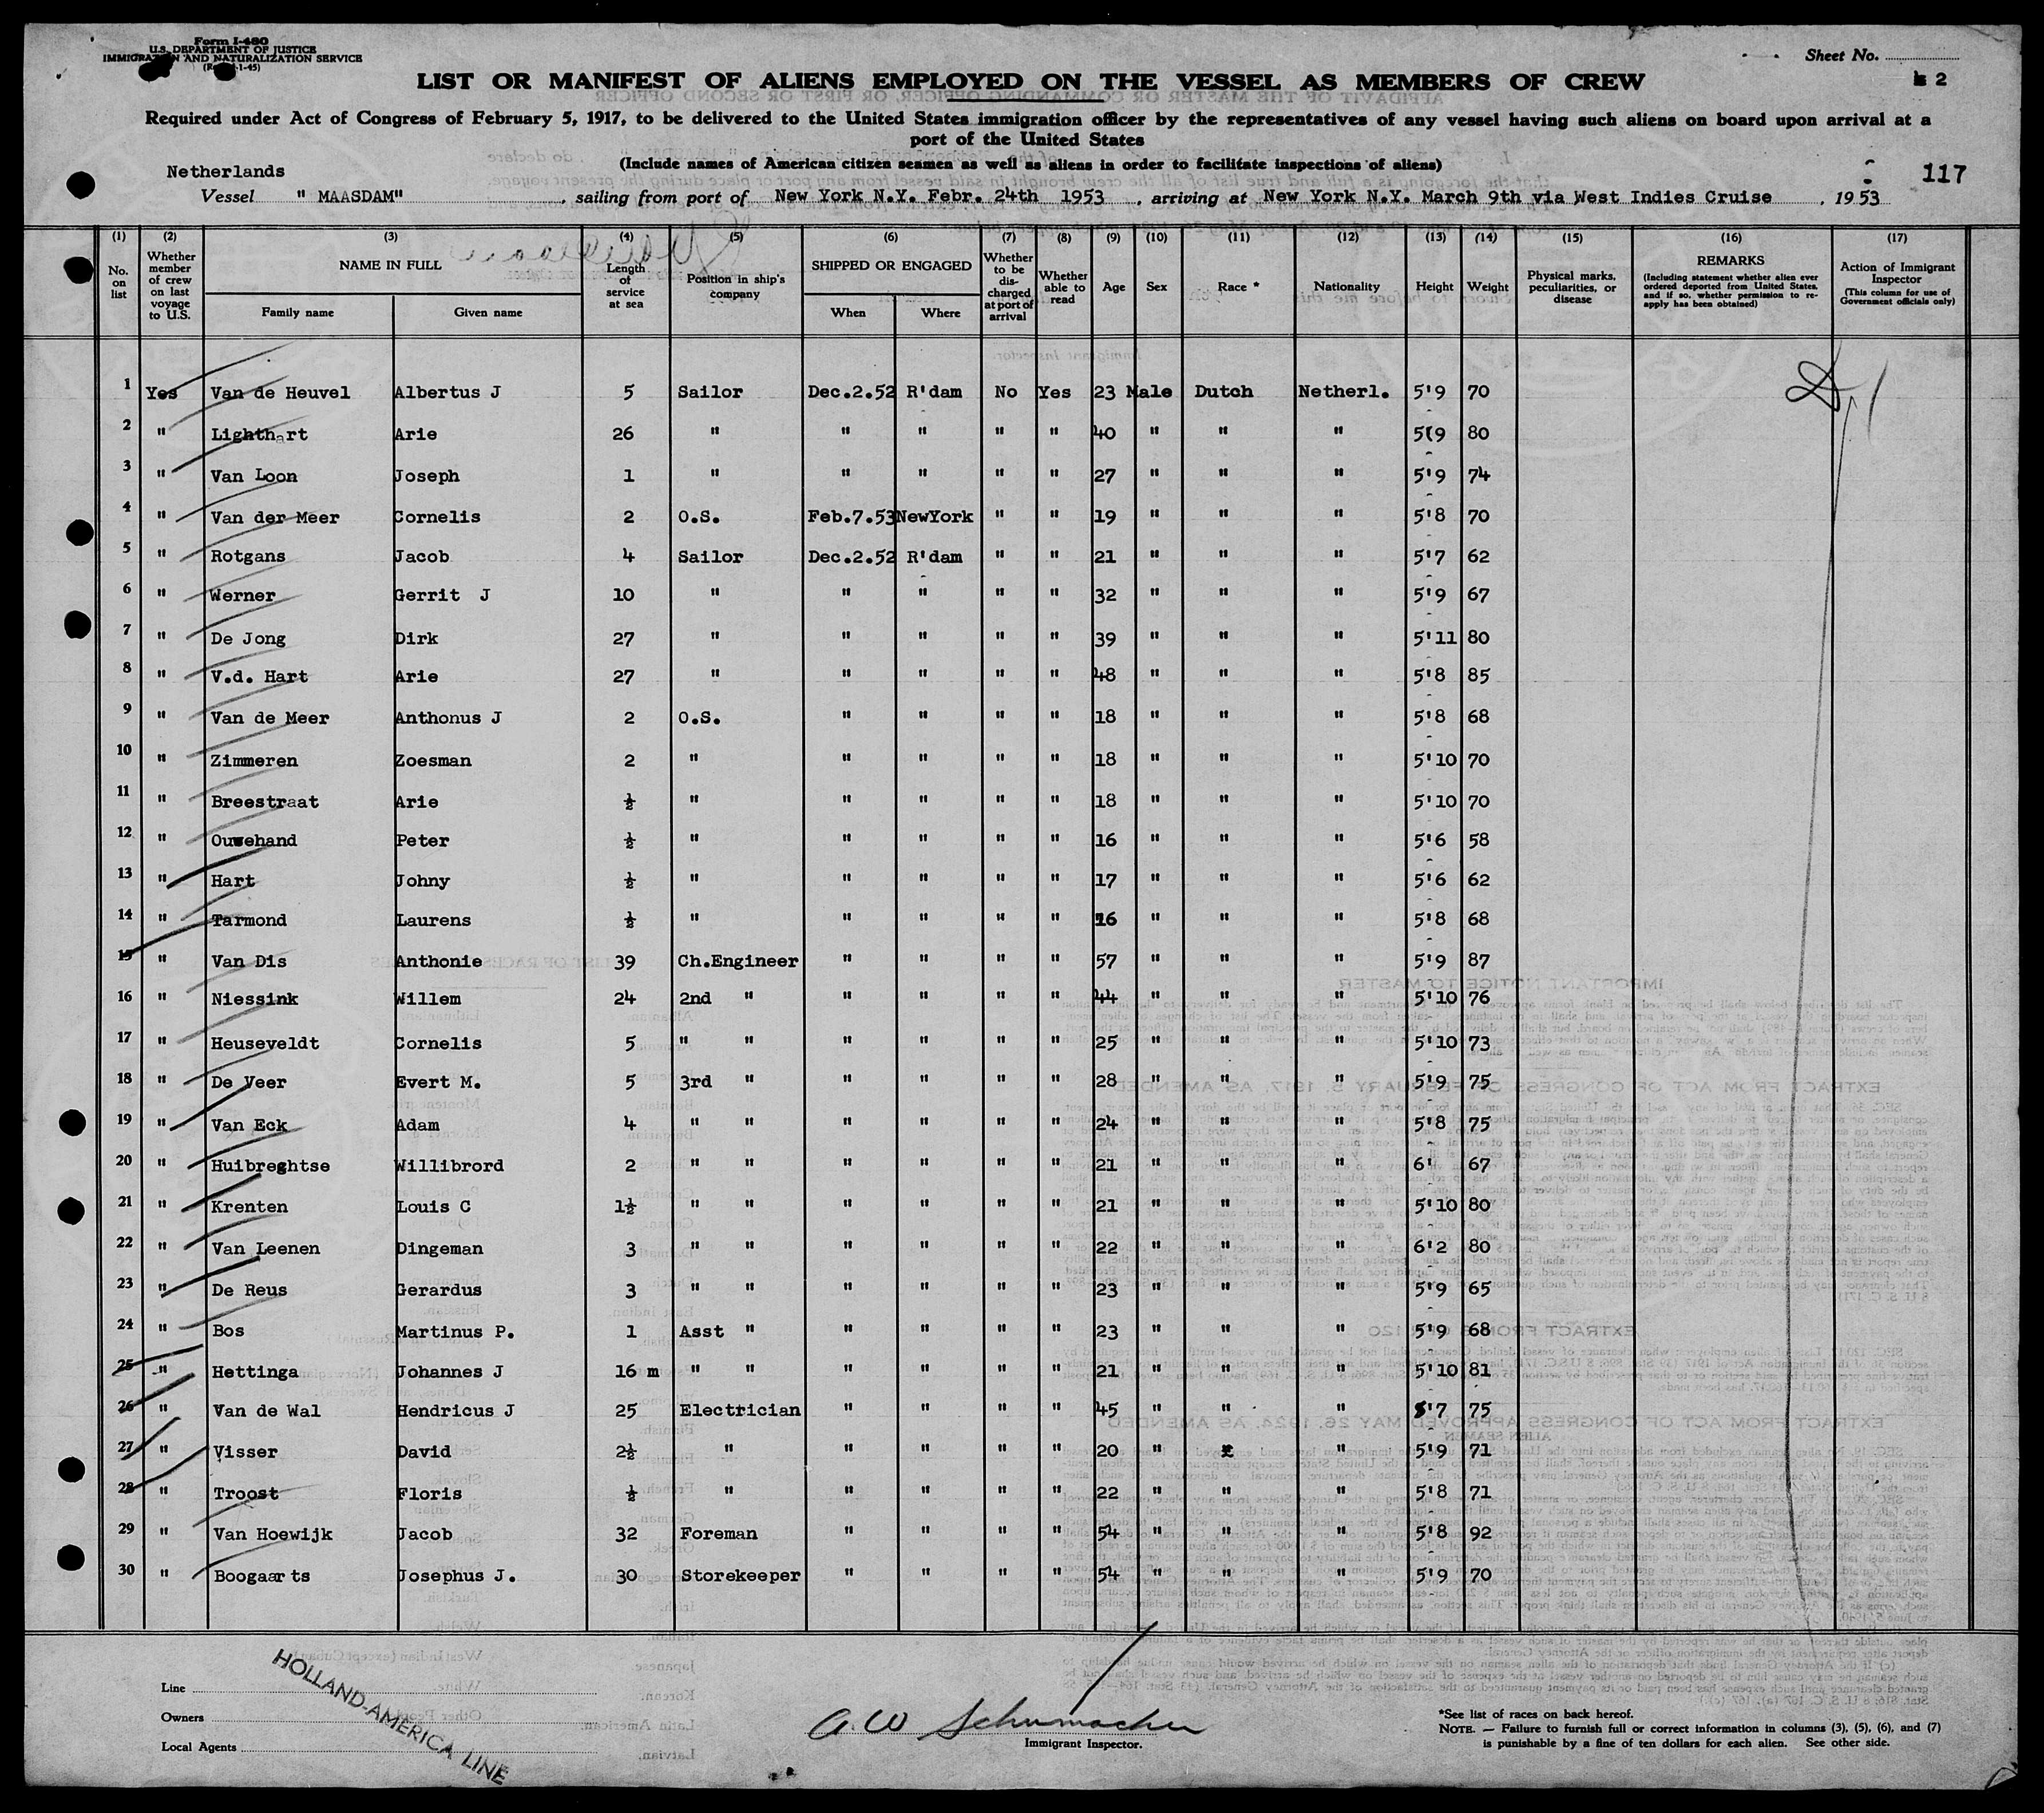 Form I-480
U.S. DEPARTMENT OF JUSTICE
IMMIGRATION AND NATURALIZATION SERVICE
Sheet No.
2
LIST OR MANIFEST OF ALIENS EMPLOYED ON THE VESSEL AS MEMBERS OF CREW
Required under Act of Congress of February 5, 1917, to be delivered to the United States immigration officer by the representatives of any vessel having such aliens on board upon arrival at a
port of the United States
(Include names of American citizen seamen as well as aliens in order to facilitate inspections of aliens)
117
Netherlands
Vessel " MAASDAM" , sailing from port of New York N.Y. Febr. 24th 1953 , arriving at New York N.Y. March 9th via West Indies Cruise , 1953
(1) (2) (3) (4) (5) (6) (7) (8) (9) (10) (11) (12) (13) (14) (15) (16) (17)
No. on list Whether member of crew on last voyage to U.S. NAME IN FULL Family name Given name Length of service at sea Position in ship's company SHIPPED OR ENGAGED When Where Whether to be discharged at port of arrival Whether able to read Age Sex Race * Nationality Height Weight Physical marks, peculiarities, or disease REMARKS (Including statement whether alien ever ordered deported from United States, and if so, whether permission to re-apply has been obtained) Action of Immigrant Inspector (This column for use of Government officials only)
1 Yes Van de Heuvel Albertus J 5 Sailor Dec.2.52 R'dam No Yes 23 Male Dutch Netherl. 5'9 70
2 " Lighthart Arie 26 " " " " " 40 " " " 5(9 80
3 " Van Loon Joseph 1 " " " " " 27 " " " 5'9 74
4 " Van der Meer Cornelis 2 O.S. Feb.7.53 NewYork " " 19 " " " 5'8 70
5 " Rotgans Jacob 4 Sailor Dec.2.52 R'dam " " 21 " " " 5'7 62
6 " Werner Gerrit J 10 " " " " " 32 " " " 5'9 67
7 " De Jong Dirk 27 " " " " " 39 " " " 5'11 80
8 " V.d. Hart Arie 27 " " " " " 48 " " " 5'8 85
9 " Van de Meer Anthonus J 2 O.S. " " " " 18 " " " 5'8 68
10 " Zimmeren Zoesman 2 " " " " " 18 " " " 5'10 70
11 " Breestraat Arie ½ " " " " " 18 " " " 5'10 70
12 " Ouwehand Peter ½ " " " " " 16 " " " 5'6 58
13 " Hart Johny ½ " " " " " 17 " " " 5'6 62
14 " Tarmond Laurens ½ " " " " " 16 " " " 5'8 68
15 " Van Dis Anthonie 39 Ch.Engineer " " " " 57 " " " 5'9 87
16 " Niessink Willem 24 2nd " " " " " 44 " " " 5'10 76
17 " Heuseveldt Cornelis 5 " " " " " " 25 " " " 5'10 73
18 " De Veer Evert M. 5 3rd " " " " " 28 " " " 5'9 75
19 " Van Eck Adam 4 " " " " " " 24 " " " 5'8 75
20 " Huibreghtse Willibrord 2 " " " " " " 21 " " " 6' 67
21 " Krenten Louis C 1½ " " " " " " 21 " " " 5'10 80
22 " Van Leenen Dingeman 3 " " " " " " 22 " " " 6'2 80
23 " De Reus Gerardus 3 " " " " " " 23 " " " 5'9 65
24 " Bos Martinus P. 1 Asst " " " " " 23 " " " 5'9 68
25 " Hettinga Johannes J 16 m " " " " " " 21 " " " 5'10 81
26 " Van de Wal Hendricus J 25 Electrician " " " " 45 " " " 5'7 75
27 " Visser David 2½ " " " " " 20 " " " 5'9 71
28 " Troost Floris ½ " " " " " 22 " " " 5'8 71
29 " Van Hoewijk Jacob 32 Foreman " " " " 54 " " " 5'8 92
30 " Boogaarts Josephus J. 30 Storekeeper " " " " 54 " " " 5'9 70
Line
Owners
Local Agents
HOLLAND-AMERICA LINE
A.W Schumacher
Immigrant Inspector.
*See list of races on back hereof.
NOTE. — Failure to furnish full or correct information in columns (3), (5), (6), and (7)
is punishable by a fine of ten dollars for each alien. See other side.